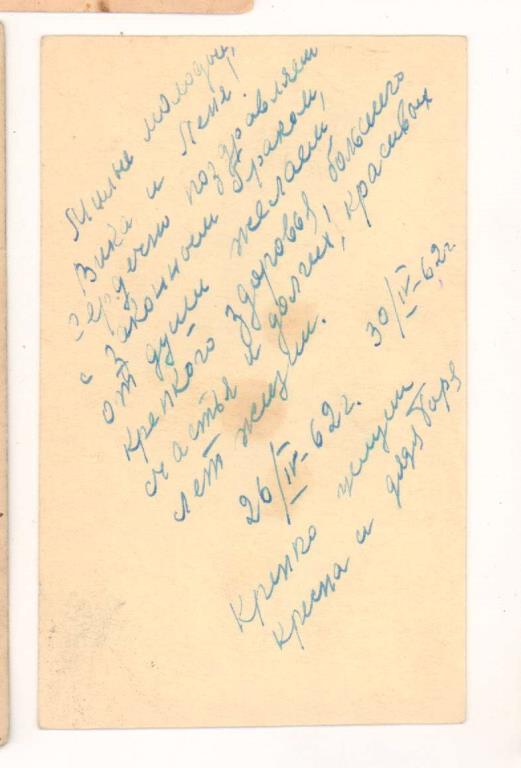 Милые молодые,
Вика и Лёня!
сердечно поздравляем
с законным браком,
от души желаем
крепкого здоровья, большого
счастья и долгих, красивых
лет жизни.
30/IV-62г.
26/IV-62г.
Крепко жмуши
крепна и дядя Боря